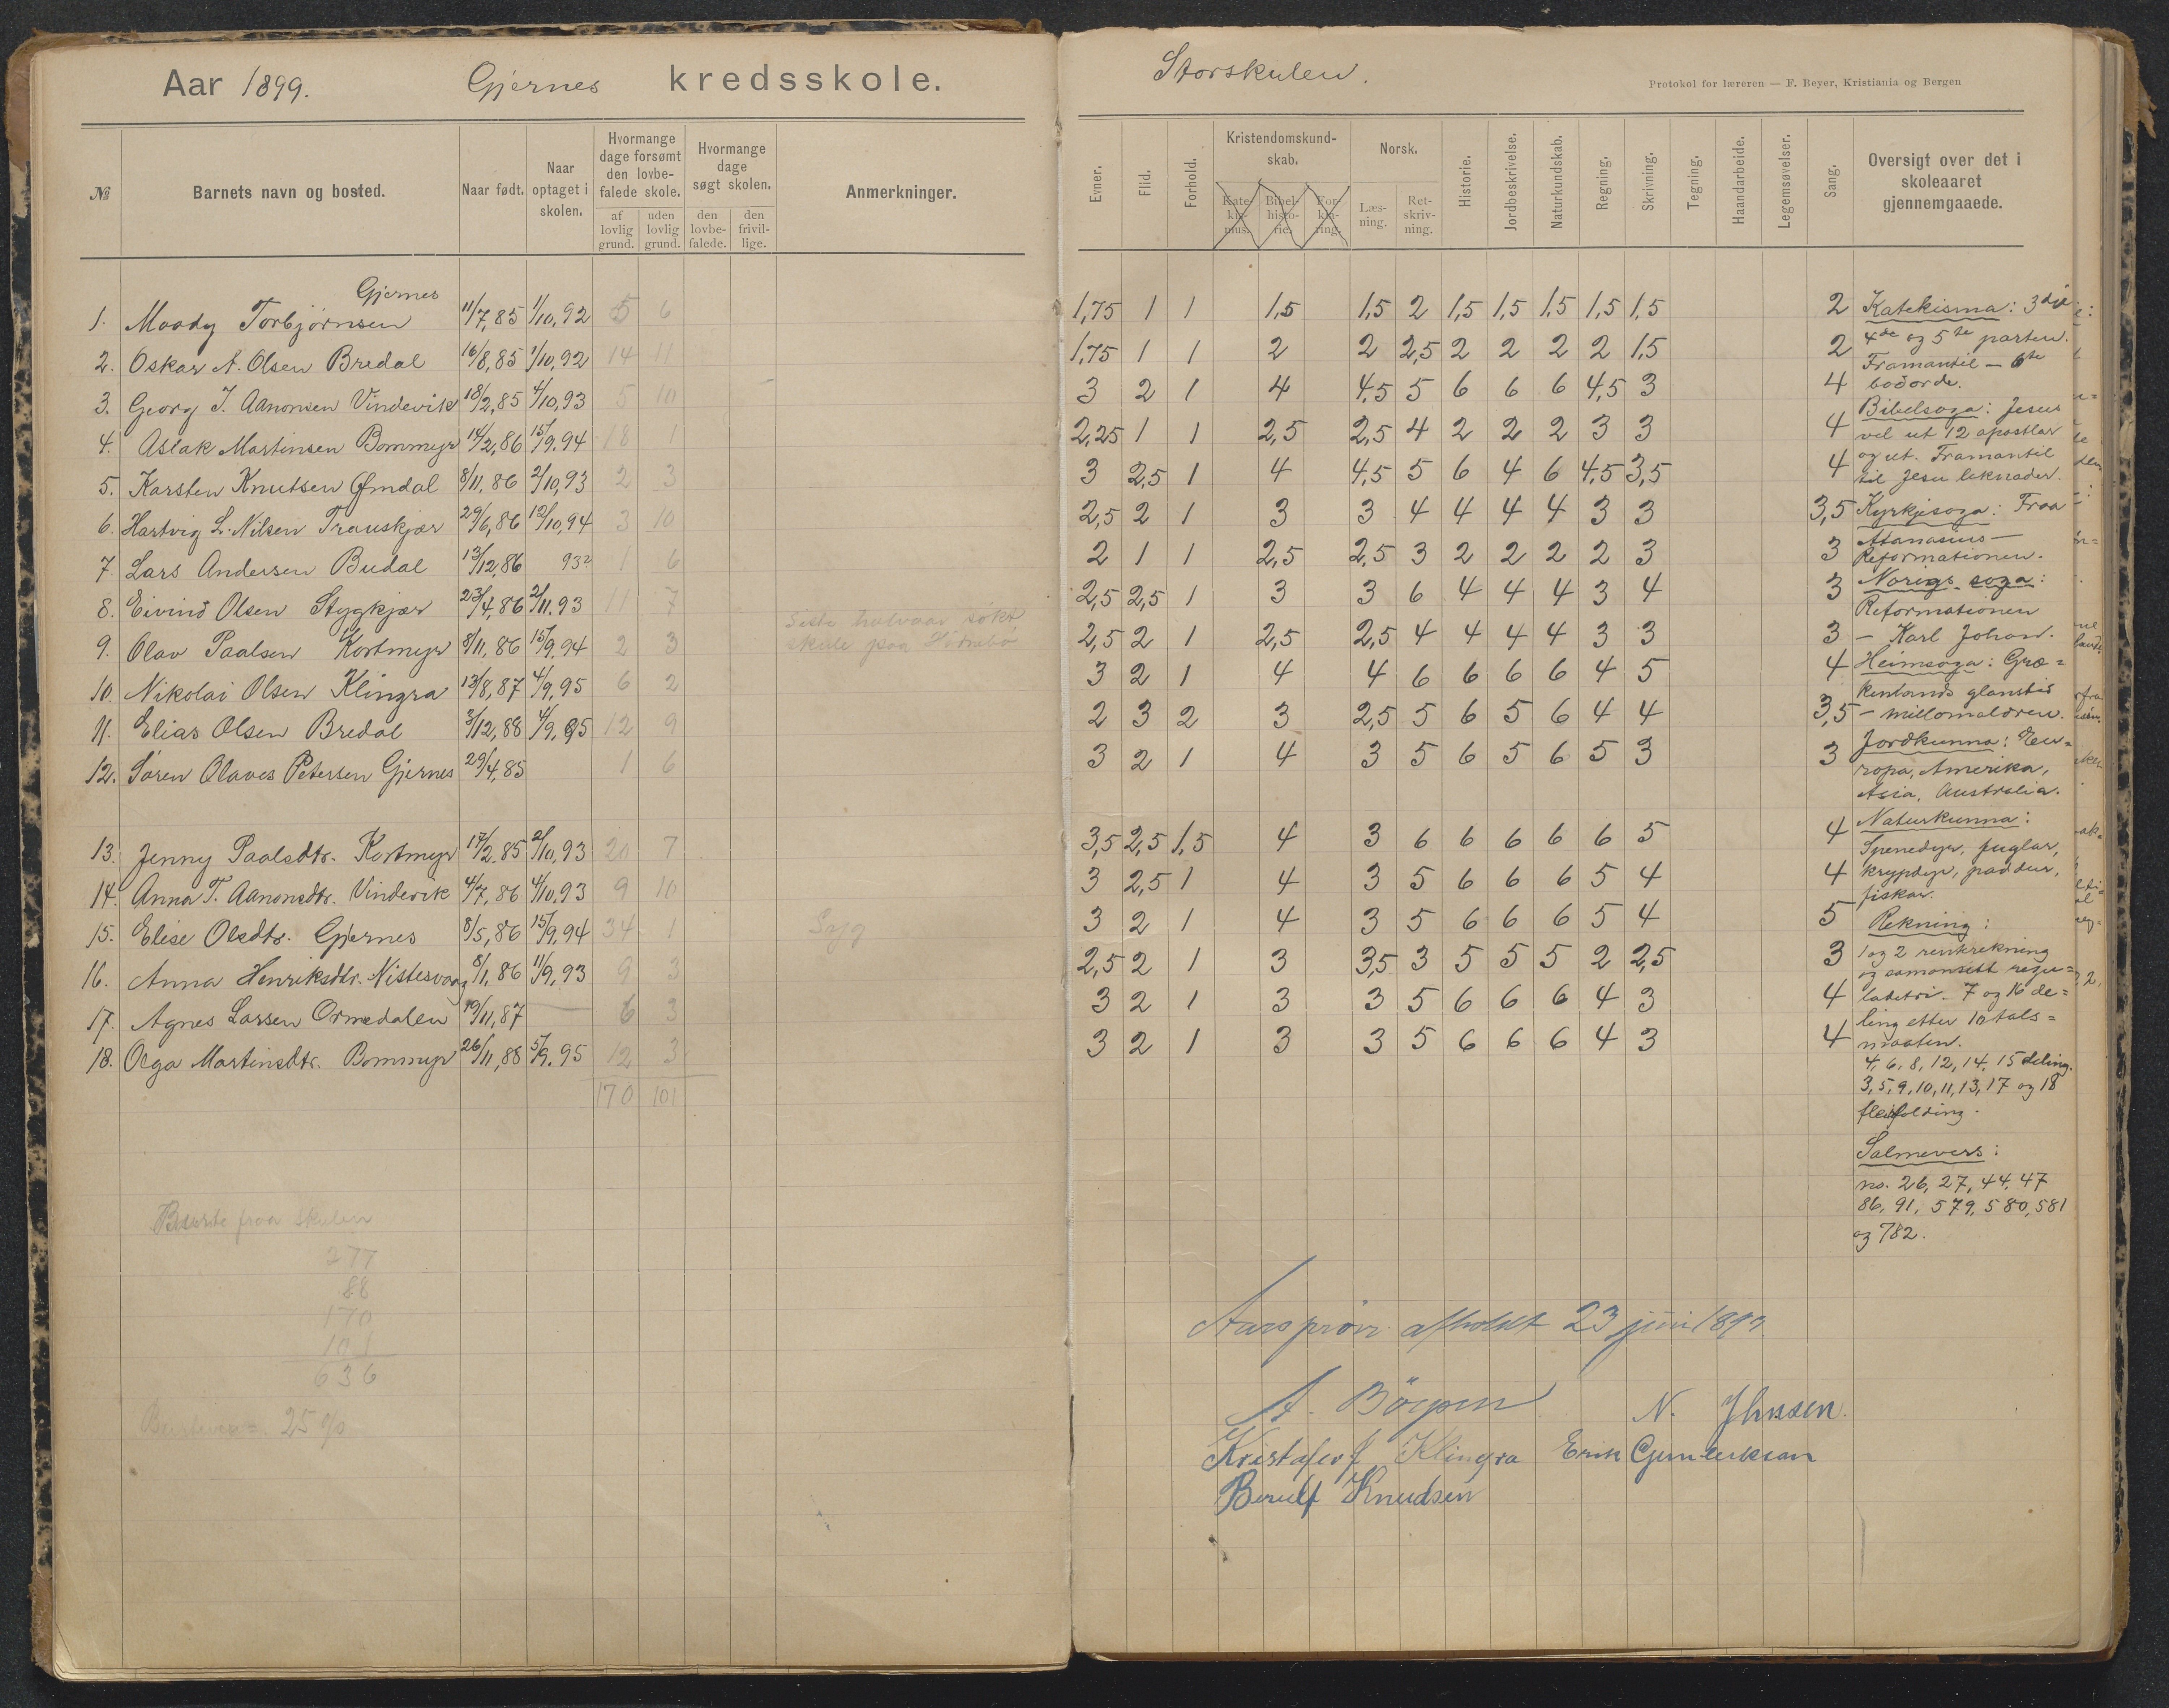 Aar 1899. Gjernes kredsskole.
№
Barnets navn og bosted.
Naar født.
Naar optaget i skolen.
Hvormange dage forsømt den lovbefalede skole.
af lovlig grund.
uden lovlig grund.
Hvormange dage søgt skolen.
den lovbefalede.
den frivillige.
Anmerkninger.
Gjernes
1. Moody Torbjørnsen 11/7,85 1/10,92 5 6
2. Oskar A. Olsen Bredal 16/8,85 1/10,92 14 11
3. Georg T. Aanonsen Vindevik 18/2,85 4/10,93 5 10
4. Aslak Martinsen Bommyr 14/2,86 15/9,94 18 1
5. Karsten Knutsen Omdal 8/11,86 2/10,93 2 3
6. Hartvig L. Nilsen Trauskjær 29/6,86 12/10,94 3 10
7. Lars Andersen Budal 13/12,86 93? 1 6
8. Eivind Olsen Stygkjær 23/4,86 2/11,93 11 7
Siste halvaar søkt
9. Olav Paalsen Kortmyr 8/11,86 15/9,94 2 3 skule paa
10. Nikolai Olsen Klingra 13/8,87 4/9,95 6 2
11. Elias Olsen Bredal 3/12,88 4/9,95 12 9
12. Søren Olaves Petersen Gjernes 29/4,85 1 6
13. Jenny Paalsdtr. Kortmyr 17/2,85 2/10,93 20 7
14. Anna T. Aanonsdtr. Vindevik 4/7,86 4/10,93 9 10
15. Elise Olsdtr. Gjernes 8/5,86 15/9,94 34 1 Syg
16. Anna Henriksdtr. Nistesvaag 8/1,86 11/9,93 9 3
17. Agnes Larsen Ormedalen 19/11,87 — 6 3
18. Olga Martinsdtr. Bommyr 26/11,88 5/9,95 12 3
170 101
fraa skulen
277
88
170
101
636
25 %
Storskulen.
Protokol for læreren — F. Beyer, Kristiania og Bergen
Evner.
Flid.
Forhold.
Kristendomskundskab.
Katekismus.
Bibelhistorie.
Forklaring.
Norsk.
Læsning.
Retskrivning.
Historie.
Jordbeskrivelse.
Naturkundskab.
Regning.
Skrivning.
Tegning.
Haandarbeide.
Legemsøvelser.
Sang.
Oversigt over det i skoleaaret gjennemgaaede.
1,75 1 1 1,5 1,5 2 1,5 1,5 1,5 1,5 1,5 2
1,75 1 1 2 2 2,5 2 2 2 2 1,5 2
3 2 1 4 4,5 5 6 6 6 4,5 3 4
2,25 1 1 2,5 2,5 4 2 2 2 3 3 4
3 2,5 1 4 4,5 5 6 4 6 4,5 3,5 4
2,5 2 1 3 3 4 4 4 4 3 3 3,5
2 1 1 2,5 2,5 3 2 2 2 2 3 3
2,5 2,5 1 3 3 6 4 4 4 3 4 3
2,5 2 1 2,5 2,5 4 4 4 4 3 3 3
3 2 1 4 4 6 6 6 6 4 5 4
2 3 2 3 2,5 5 6 5 6 4 4 3,5
3 2 1 4 3 5 6 5 6 5 3 3
3,5 2,5 1,5 4 3 6 6 6 6 6 5 4
3 2,5 1 4 3 5 6 6 6 5 4 4
3 2 1 4 3 5 6 6 6 5 4 5
2,5 2 1 3 3,5 3 5 5 5 2 2,5 3
3 2 1 3 3 5 6 6 6 4 3 4
3 2 1 3 3 5 6 6 6 4 3 4
Katekisma: 3dje
4de og 5te parten.
Framantil — 6te
bodorde.
Bibelsoga: Jesus
vel ut 12 apostlar
og ut. Framantil
til Jesu liknader.
Kyrkjesoga: Fraa
Atanasius —
Reformationen.
Norigs soga:
Reformationen
— Karl Johan.
Heimsoga: Græ=
kenlands glanstid
— millomaldren.
Jordkunna: Eu=
ropa, Amerika,
Asia, Australia.
Naturkunna:
Spenedyr, fuglar,
krypdyr, paddur,
fiskar.
Rekning:
1 og 2 renkrekning
og samansett regu=
ladetri. 7 og 16 de=
ling etter 10 tals=
maaten.
4, 6, 8, 12, 14, 15 deling.
3, 5, 9, 10, 11, 13, 17 og 18
fleirfolding.
Salmevers:
no. 26, 27, 44, 47
86, 91, 579, 580, 581
og 782.
Aarsprøve afholdt 23 juni 1899.
N. Jhnsen
Kristofer J Klingra
Berulf Knudsen